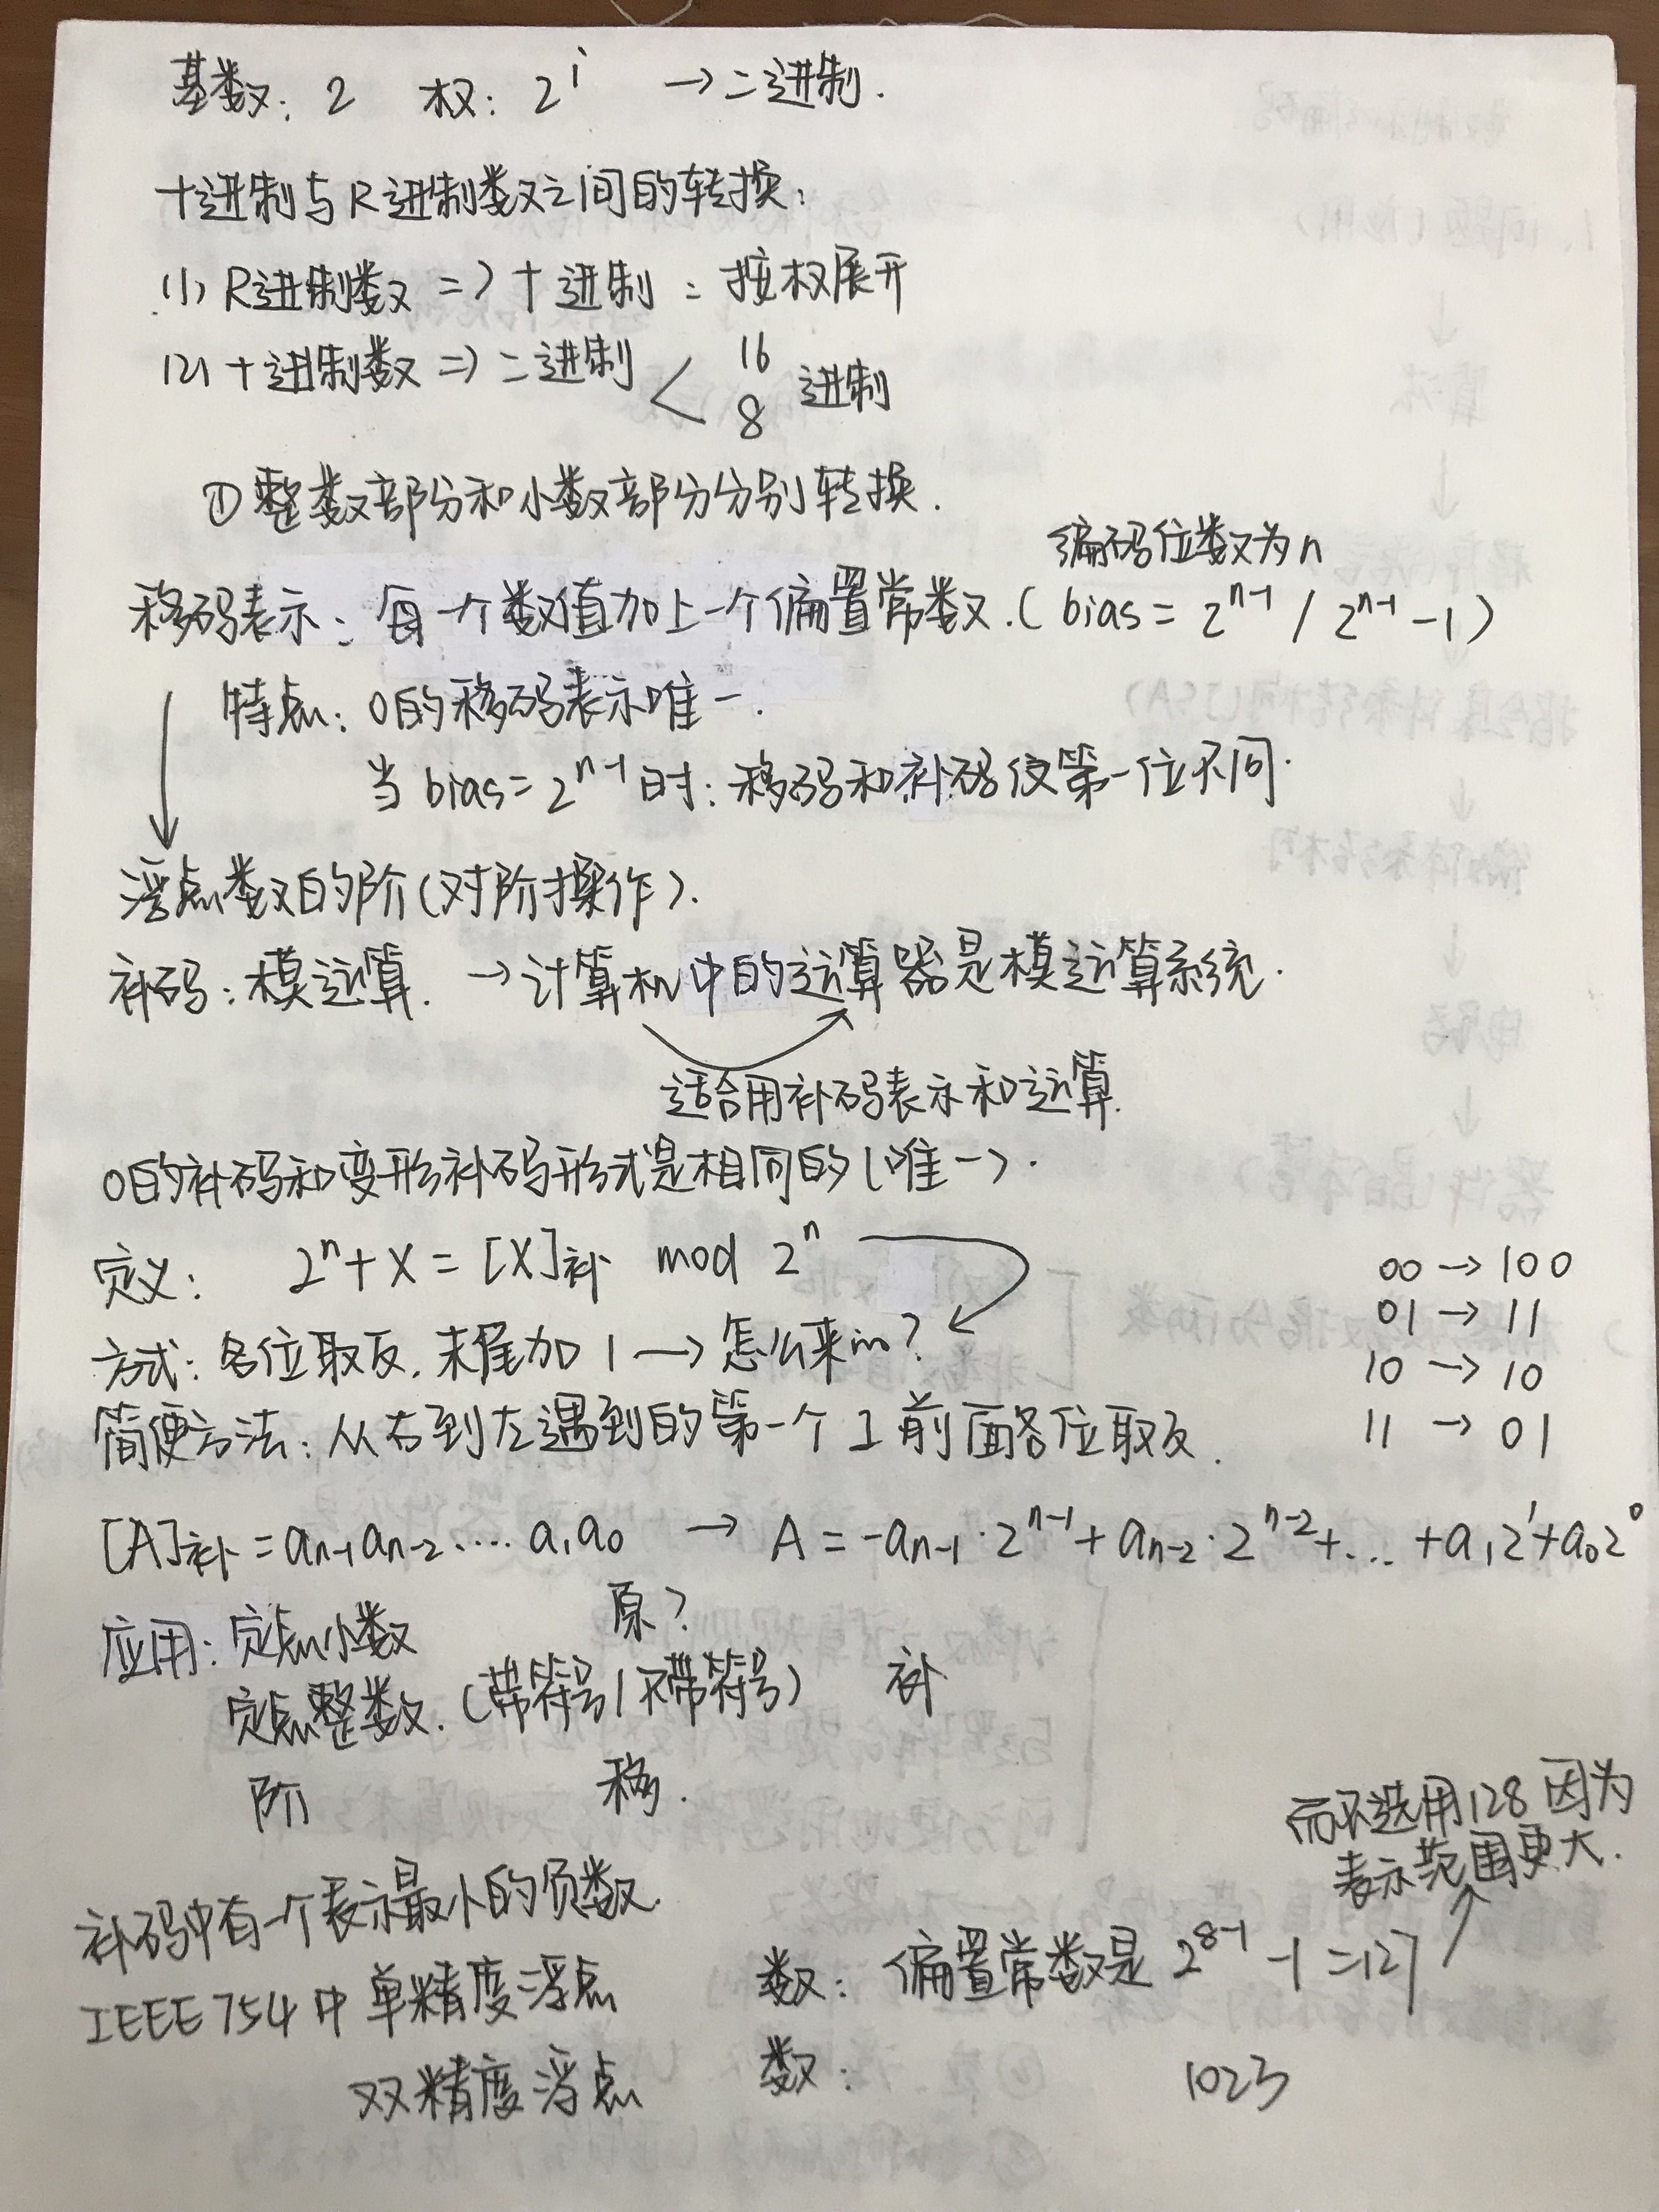 基数: 2 权: 2^i → 二进制.
十进制与R进制数之间的转换:
(1) R进制数 => 十进制: 按权展开
(2) 十进制数 => 二进制 < 16 8 进制
① 整数部分和小数部分分别转换.
编码位数为n
移码表示: 每一个数值加上一个偏置常数.( bias = 2^{n-1} / 2^{n-1} -1 )
特点: 0的移码表示唯一.
当 bias = 2^{n-1} 时: 移码和补码仅第一位不同.
浮点数的阶(对阶操作).
补码: 模运算. → 计算机中的运算器是模运算系统.
适合用补码表示和运算.
0的补码和变形补码形式是相同的(唯一).
定义: 2^n + X = [X]补 mod 2^n
00 → 100
01 → 11
方式: 各位取反, 末尾加1 → 怎么来的?
10 → 10
简便方法: 从右到左遇到的第一个1前面各位取反.
11 → 01
[A]补 = a_{n-1} a_{n-2} ..... a_1 a_0 → A = -a_{n-1}·2^{n-1} + a_{n-2}·2^{n-2} + ... + a_1 2^1 + a_0 2^0
应用: 定点小数 原?
定点整数. (带符号/不带符号) 补
阶 移.
而不选用128因为
表示范围更大.
补码中有一个表示最小的负数.
IEEE 754 中 单精度浮点 数: 偏置常数是 2^{8-1} -1 = 127
双精度浮点 数: 1023